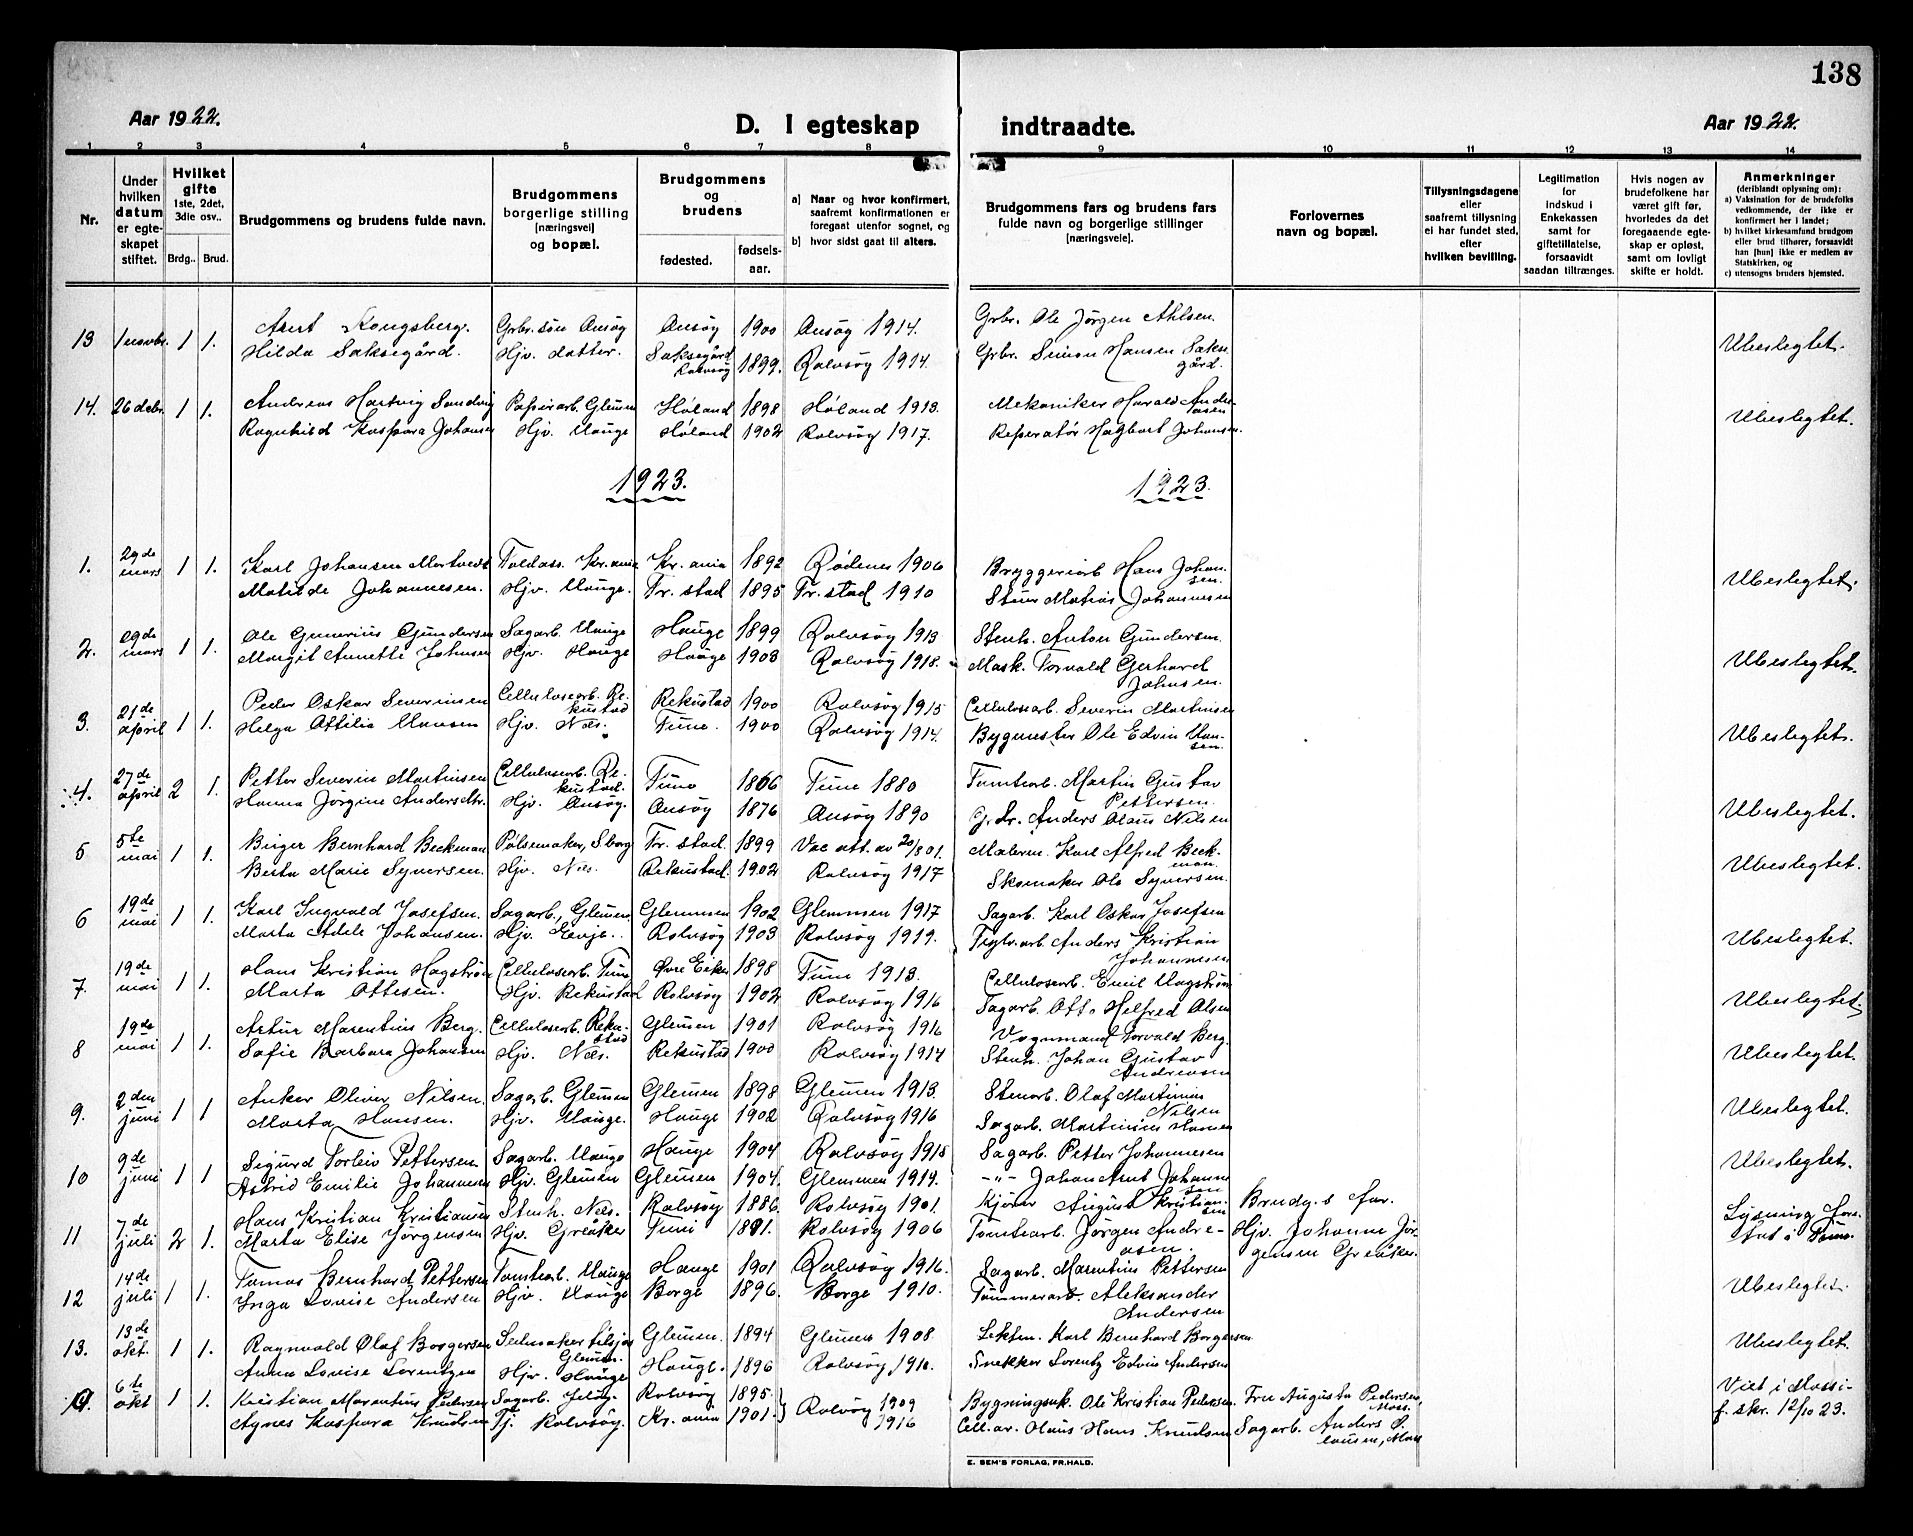 138
Aar 1922.
D. I egteskap indtraadte.
Aar 1922.
1 2 3 4 5 6 7 8 9 10 11 12 13 14
Nr.
Under hvilken datum er egteskapet stiftet.
Hvilket gifte 1ste, 2det, 3die osv..
Brdg.. Brud.
Brudgommens og brudens fulde navn.
Brudgommens borgerlige stilling [næringsvei] og bopæl.
Brudgommens og brudens
fødested. fødsels-aar.
a) Naar og hvor konfirmert, saafremt konfirmationen er foregaat utenfor sognet, og
b) hvor sidst gaat til alters.
Brudgommens fars og brudens fars fulde navn og borgerlige stillinger [næringsveie].
Forlovernes navn og bopæl.
Tillysningsdagene eller saafremt tillysning ei har fundet sted, efter hvilken bevilling.
Legitimation for indskud i Enkekassen samt for giftetillatelse, forsaavidt saadan tiltrænges.
Hvis nogen av brudefolkene har været gift før, hvorledes da det foregaaende egteskap er opløst, samt om lovlig skifte er holdt.
Anmerkninger (deriblandt oplysning om):
a) Vaksination for de brudefolks vedkommende, der ikke er konfirmert her i landet;
b) hvilket kirkesamfund brudgom eller brud tilhører, forsaavidt han [hun] ikke er medlem av Statskirken, og
c) utensogns bruders hjemsted.
13 1 novbr. 1 1. Arnt Kongsberg. Grbr. søn Ausøg Ausøg 1900 Ausøg 1914. Grbr. Ole Jørgen Ahlsen. Ubeslegtet.
Hilda Saksegård. Hjv. datter. Saksegård Rolvsøy 1899. Rolvsøy 1914. Grbr. Simon Hansen Saksegård.
14. 26 debr. 1 1. Andreas Hartvig Sandvig Papirarb. Glemen Høland 1898 Høland 1913. Mekaniker Harald Andersen Ubeslegtet.
Ragnhild Kaspara Johansen Hjv. Hauge Høland 1902 Rolvsøy 1917. Reparatør Hagbart Johansen.
1923. 1923.
1. 29de mars 1 1. Karl Johansen Mortvedt Toldass. Kr.ania Kr.ania 1892 Rødenes 1906 Bryggeriarb Hans Johansen. Ubeslegtet.
Matilde Johannesen. Hjv. Hauge. Fr.stad 1895 Fr.stad 1910 Stuer Matias Johannesen
2. 29de mars 1 1. Ole Gunerius Gundersen Sagarb. Hauge Hauge 1899 Rolvsøy 1913 Stenh. Anton Gundersen. Ubeslegtet.
Margit Annette Johnsen Hjv. Hauge Hauge 1903 Rolvsøy 1918. Mask. Torvald Gerhard Johnsen.
3. 21de april 1 1. Peder Oskar Severinsen Cellulosearb. Rekustad Rekustad 1900 Rolvsøy 1915 Cellulosearb. Severin Martinsen Ubeslegtet.
Helga Attilia Hansen Hjv. Næs. Tune. 1900 Rolvsøy 1914. Bygmester Ole Edvin Hansen.
4. 27de april 2 1. Petter Severin Martinsen Cellulosearb. Rekustad. Tune 1866 Tune 1880 Tomtearb. Martin Gustav Pettersen. Ubeslegtet.
Hanna Jørgine Andersdtr. Hjv. Ausøg. Ausøy 1876 Ausøy 1890 Anders Olaus Nilsen
5 5te mai 1 1. Birger Bernhard Beckman Pølsemaker, Sborg Fr.stad. 1899 Vac att. av 20/8 01. Malerm. Karl Alfred Beckman. Ubeslegtet.
Berta Marie Syversen. Hjv. Næs. Rekustad. 1902 Rolvsøy 1917 Skomaker Ole Syversen.
6 19de mai 1 1. Karl Ingvald Josefsen. Sagarb., Glemen Glemmen 1902 Glemmen 1917 Sagarb. Karl Oskar Josefsen Ubeslegtet.
Marta Adele Johansen. Hjv. Evje. Rolvsøy 1903 Rolvsøy 1919. Teglv.arb Anders Kristian Johannesen
7. 19de mai 1 1. Hans Kristian Hagstrøm Cellulosearb. Tune Øvre Eiker 1898 Tune 1913. Cellulosearb. Emil Hagstrøm Ubeslegtet.
Marta Ottesen. Hjv. Rekustad Rolvsøy 1902 Rolvsøy 1916 Sagarb. Otto Helfred Olsen
8 19de mai 1 1. Artur Marentius Berg. Cellulosearb. Rekustad Glemen 1901 Rolvsøy 1916 Vognmand Torvald Berg. Ubeslegtet.
Sofie Barbara Johansen Hjv. Næs. Rekustad 1900 Rolvsøy 1914 Stenh. Johan Gustav Andreasen
9. 2den juni 1 1 Anker Oliver Nilsen. Sagarb. Glemen Glemen 1898 Glemen 1913. Stenarb. Olaf Martinius Nilsen Ubeslegtet.
Marta Hansen. Hjv. Hauge. Hauge 1902 Rolvsøy 1916 Sagarb. Martinius Hansen
10 9de juni 1 1 Sigurd Torleiv Pettersen. Sagarb. Hauge Hauge 1904 Rolvsøy 1918 Sagarb. Petter Johannesen Ubeslegtet.
Astrid Emilie Johannesen Hjv. Glemen Glemen 1904. Glemmen 1919. -"- Johan Arnt Johannesen
11 7de juli 2 1. Hans Kristian Kristiansen Stenh. Næs. Rolvsøy 1886. Rolvsøy 1901. Kjører August Kristiansen Brudg.s far. Lysning fore- Tune.
Marta Elise Jørgensen Hjv. Greåker Tune 1891. Rolvsøy 1906 Tomtearb. Jørgen Andreasen. Hjv. Johanne Jørgensen Greåker.
12 14de juli 1 1. Tomas Bernhard Pettersen Tomtearb. Hauge Hauge 1901 Rolvsøy 1916. Sagarb. Marentius Pettersen Ubeslegtet.
Inga Lovise Andersen Hjv. Hauge Borge 1896. Borge 1910. Tømmerarb. Aleksander Andersen
13. 13de okt. 1 1. Ragnvald Olaf Borgersen Seilmaker Glemen. Glemen. 1894 Glemen 1908 Karl Bernhard Borgersen Ubeslegtet.
Anna Lovise Lorentzen Hjv. Hauge Hauge. 1896 Rolvsøy 1910. Snekker Lorentz Edvin Andersen
6te okt 1 1. Kristian Marentius Pedersen Sagarb. Jeløy. Rolvsøy 1895. Rolvsøy 1909 Bygningssnk. Ole Kristian Pedersen. Fru Augusta Pedersen, Moss. Viet i Moss if. skr. 12/10 23.
Agnes Kaspara Knudsen Tj. Rolvsøy. Kr.ania 1901. 1916 Cell.ar. Olaus Hans Knudsen Sagarb. Anders Moss
E. SEM'S FORLAG, FR.HALD.